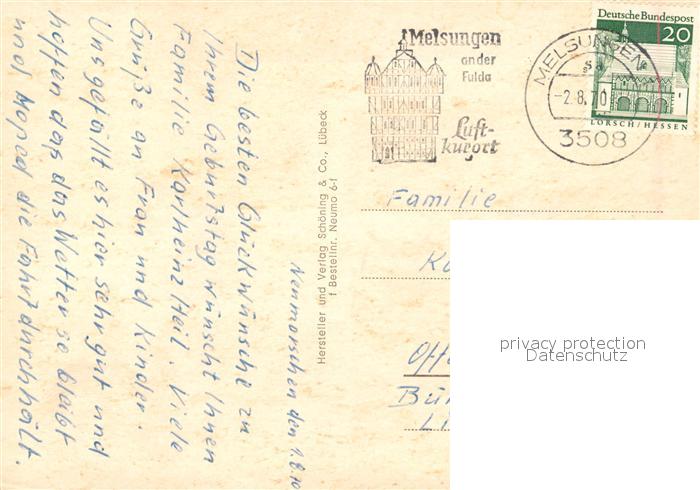 Melsungen
an der
Fulda
Luft-
kurort
MELSUNGEN
-2.8.70
3508
Deutsche Bundespost
20
LORSCH/HESSEN
Neumorschen den 1.8.70
Die besten Glückwünsche zu
Ihrem Geburtstag wünscht Ihnen
Familie Karlheinz Heil. Viele
Grüße an Frau und Kinder.
Uns gefällt es hier sehr gut und
hoffen das das Wetter so bleibt
und Moped die Fahrt durchhält.
Hersteller und Verlag Schöning & Co., Lübeck
Bestellnr. Neumo 6-f
Familie
privacy protection
Datenschutz